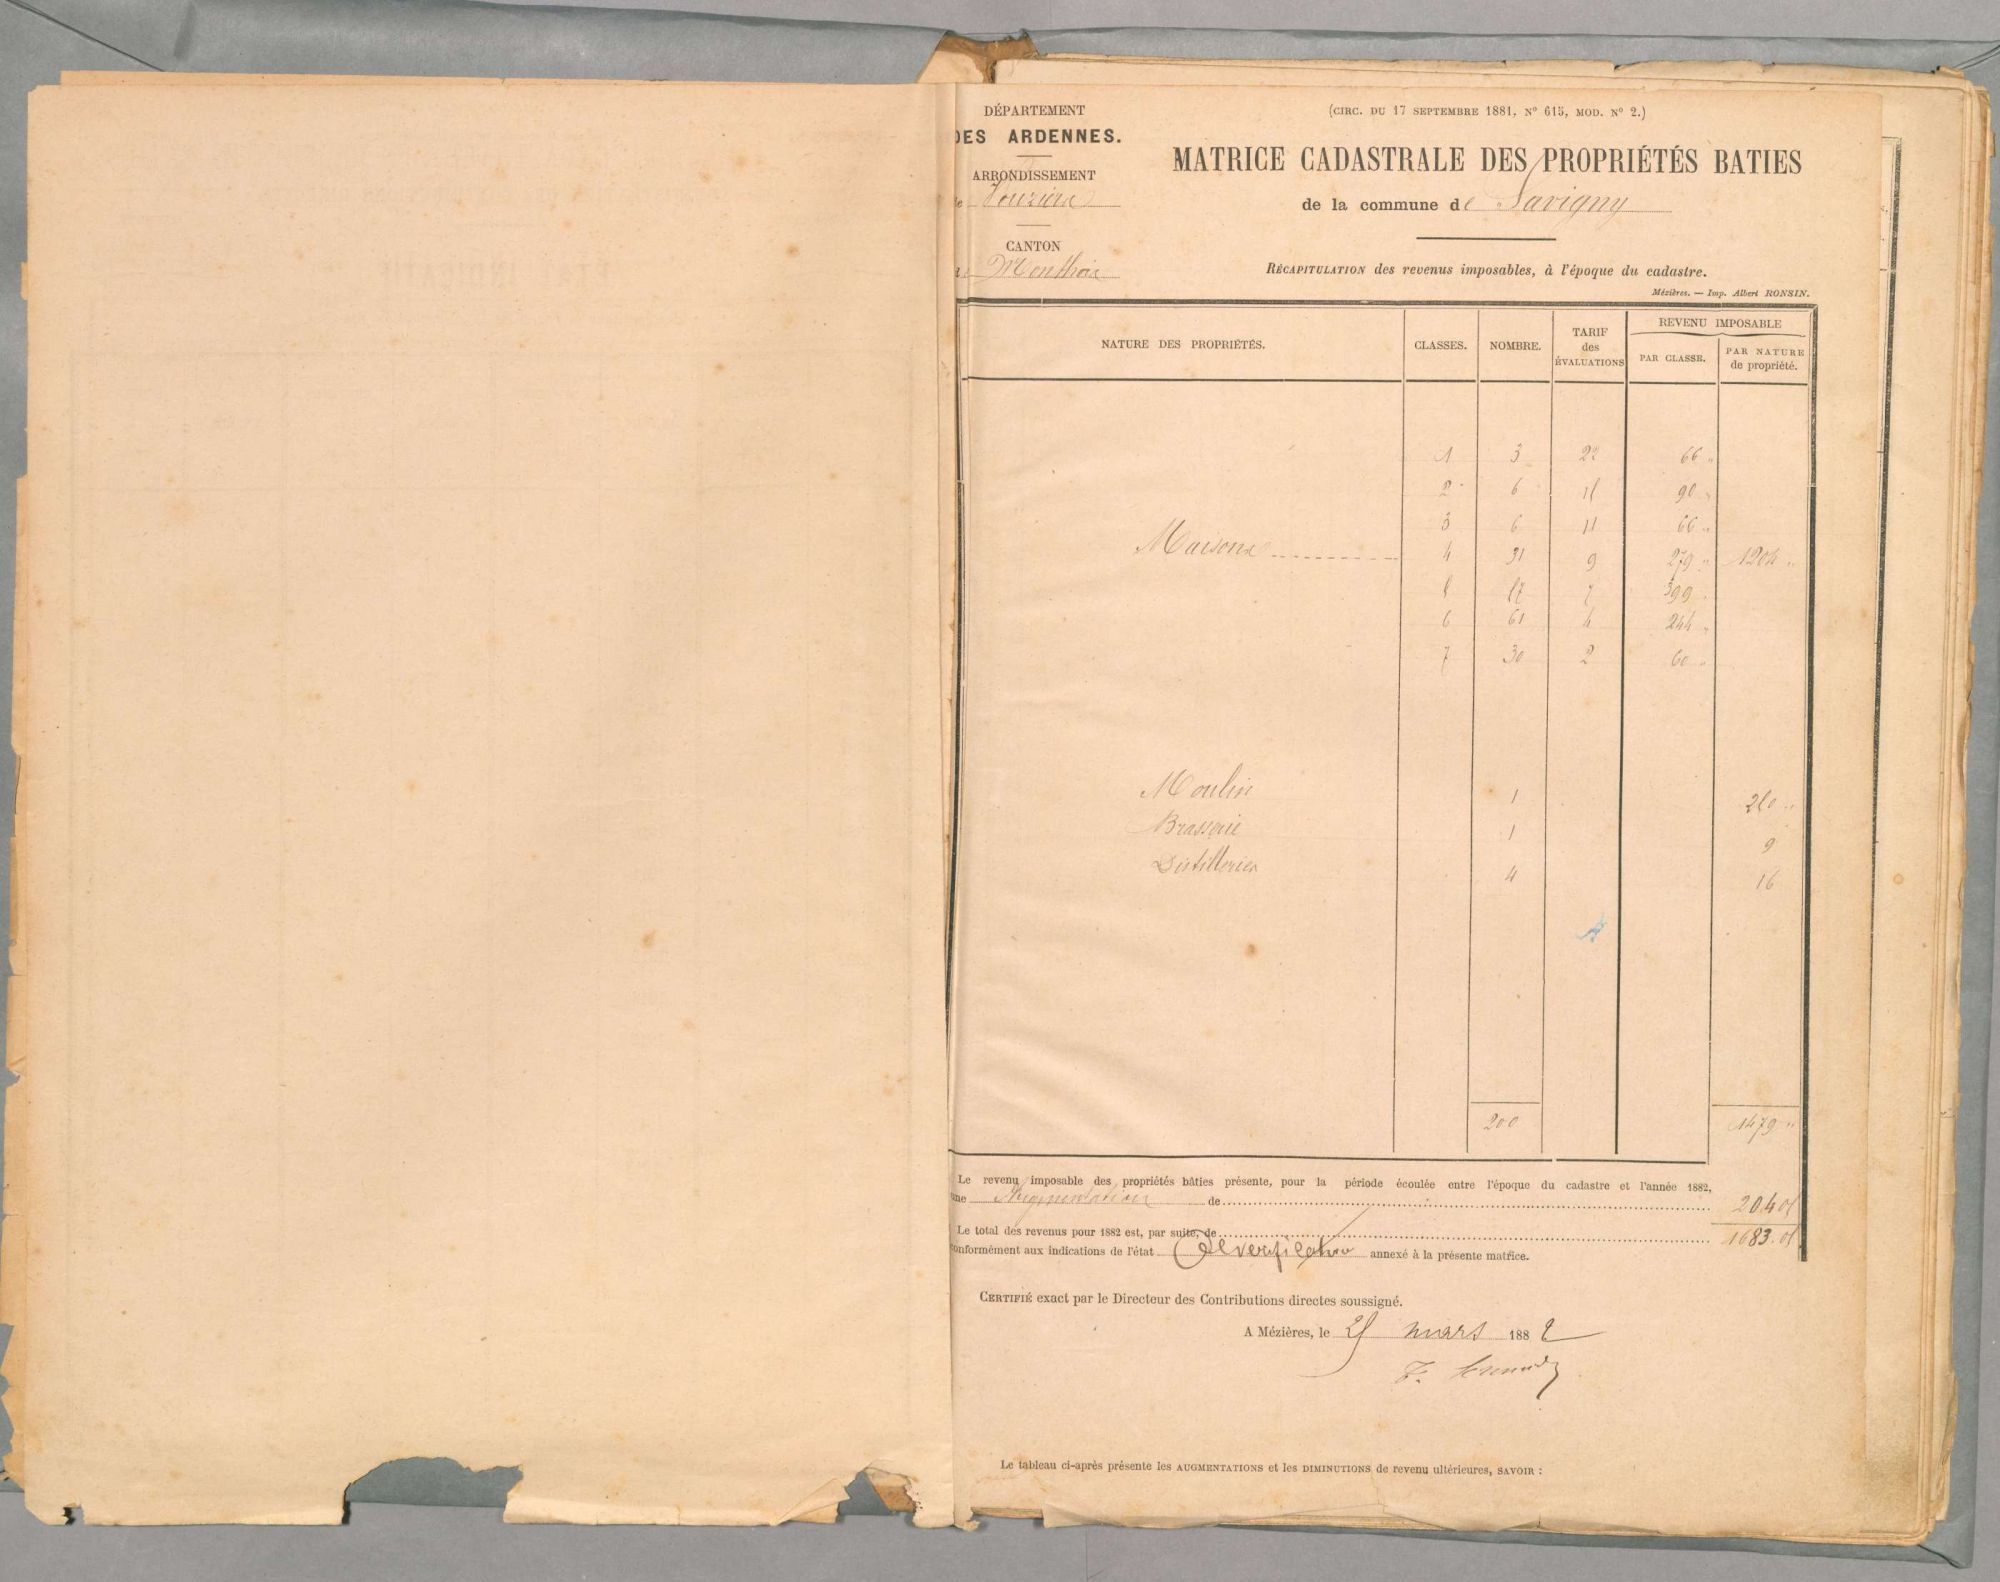 DÉPARTEMENT
DES ARDENNES.
ARRONDISSEMENT
de Vouziers
CANTON
de Monthois
(CIRC. DU 17 SEPTEMBRE 1881, N° 615, MOD. N° 2.)
MATRICE CADASTRALE DES PROPRIÉTÉS BATIES
de la commune de Savigny
RÉCAPITULATION des revenus imposables, à l'époque du cadastre.
Mézières. — Imp. Albert RONSIN.
NATURE DES PROPRIÉTÉS. CLASSES. NOMBRE. TARIF des ÉVALUATIONS REVENU IMPOSABLE PAR CLASSE. PAR NATURE de propriété.
1 3 22 66 "
2 6 15 90 "
3 6 11 66 "
Maisons 4 31 9 279 " 1204 "
5 57 7 399 "
6 61 4 244 "
7 30 2 60 "
Moulin 1 250 "
Brasserie 1 9
Distilleries 4 16
200 1479 "
Le revenu imposable des propriétés bâties présente, pour la période écoulée entre l'époque du cadastre et l'année 1882,
une Augmentation de 204 05
Le total des revenus pour 1882 est, par suite, de 1683.05
conformément aux indications de l'état de vérification annexé à la présente matrice.
CERTIFIÉ exact par le Directeur des Contributions directes soussigné.
A Mézières, le 25 mars 1882
Le tableau ci-après présente les AUGMENTATIONS et les DIMINUTIONS de revenu ultérieures, SAVOIR :